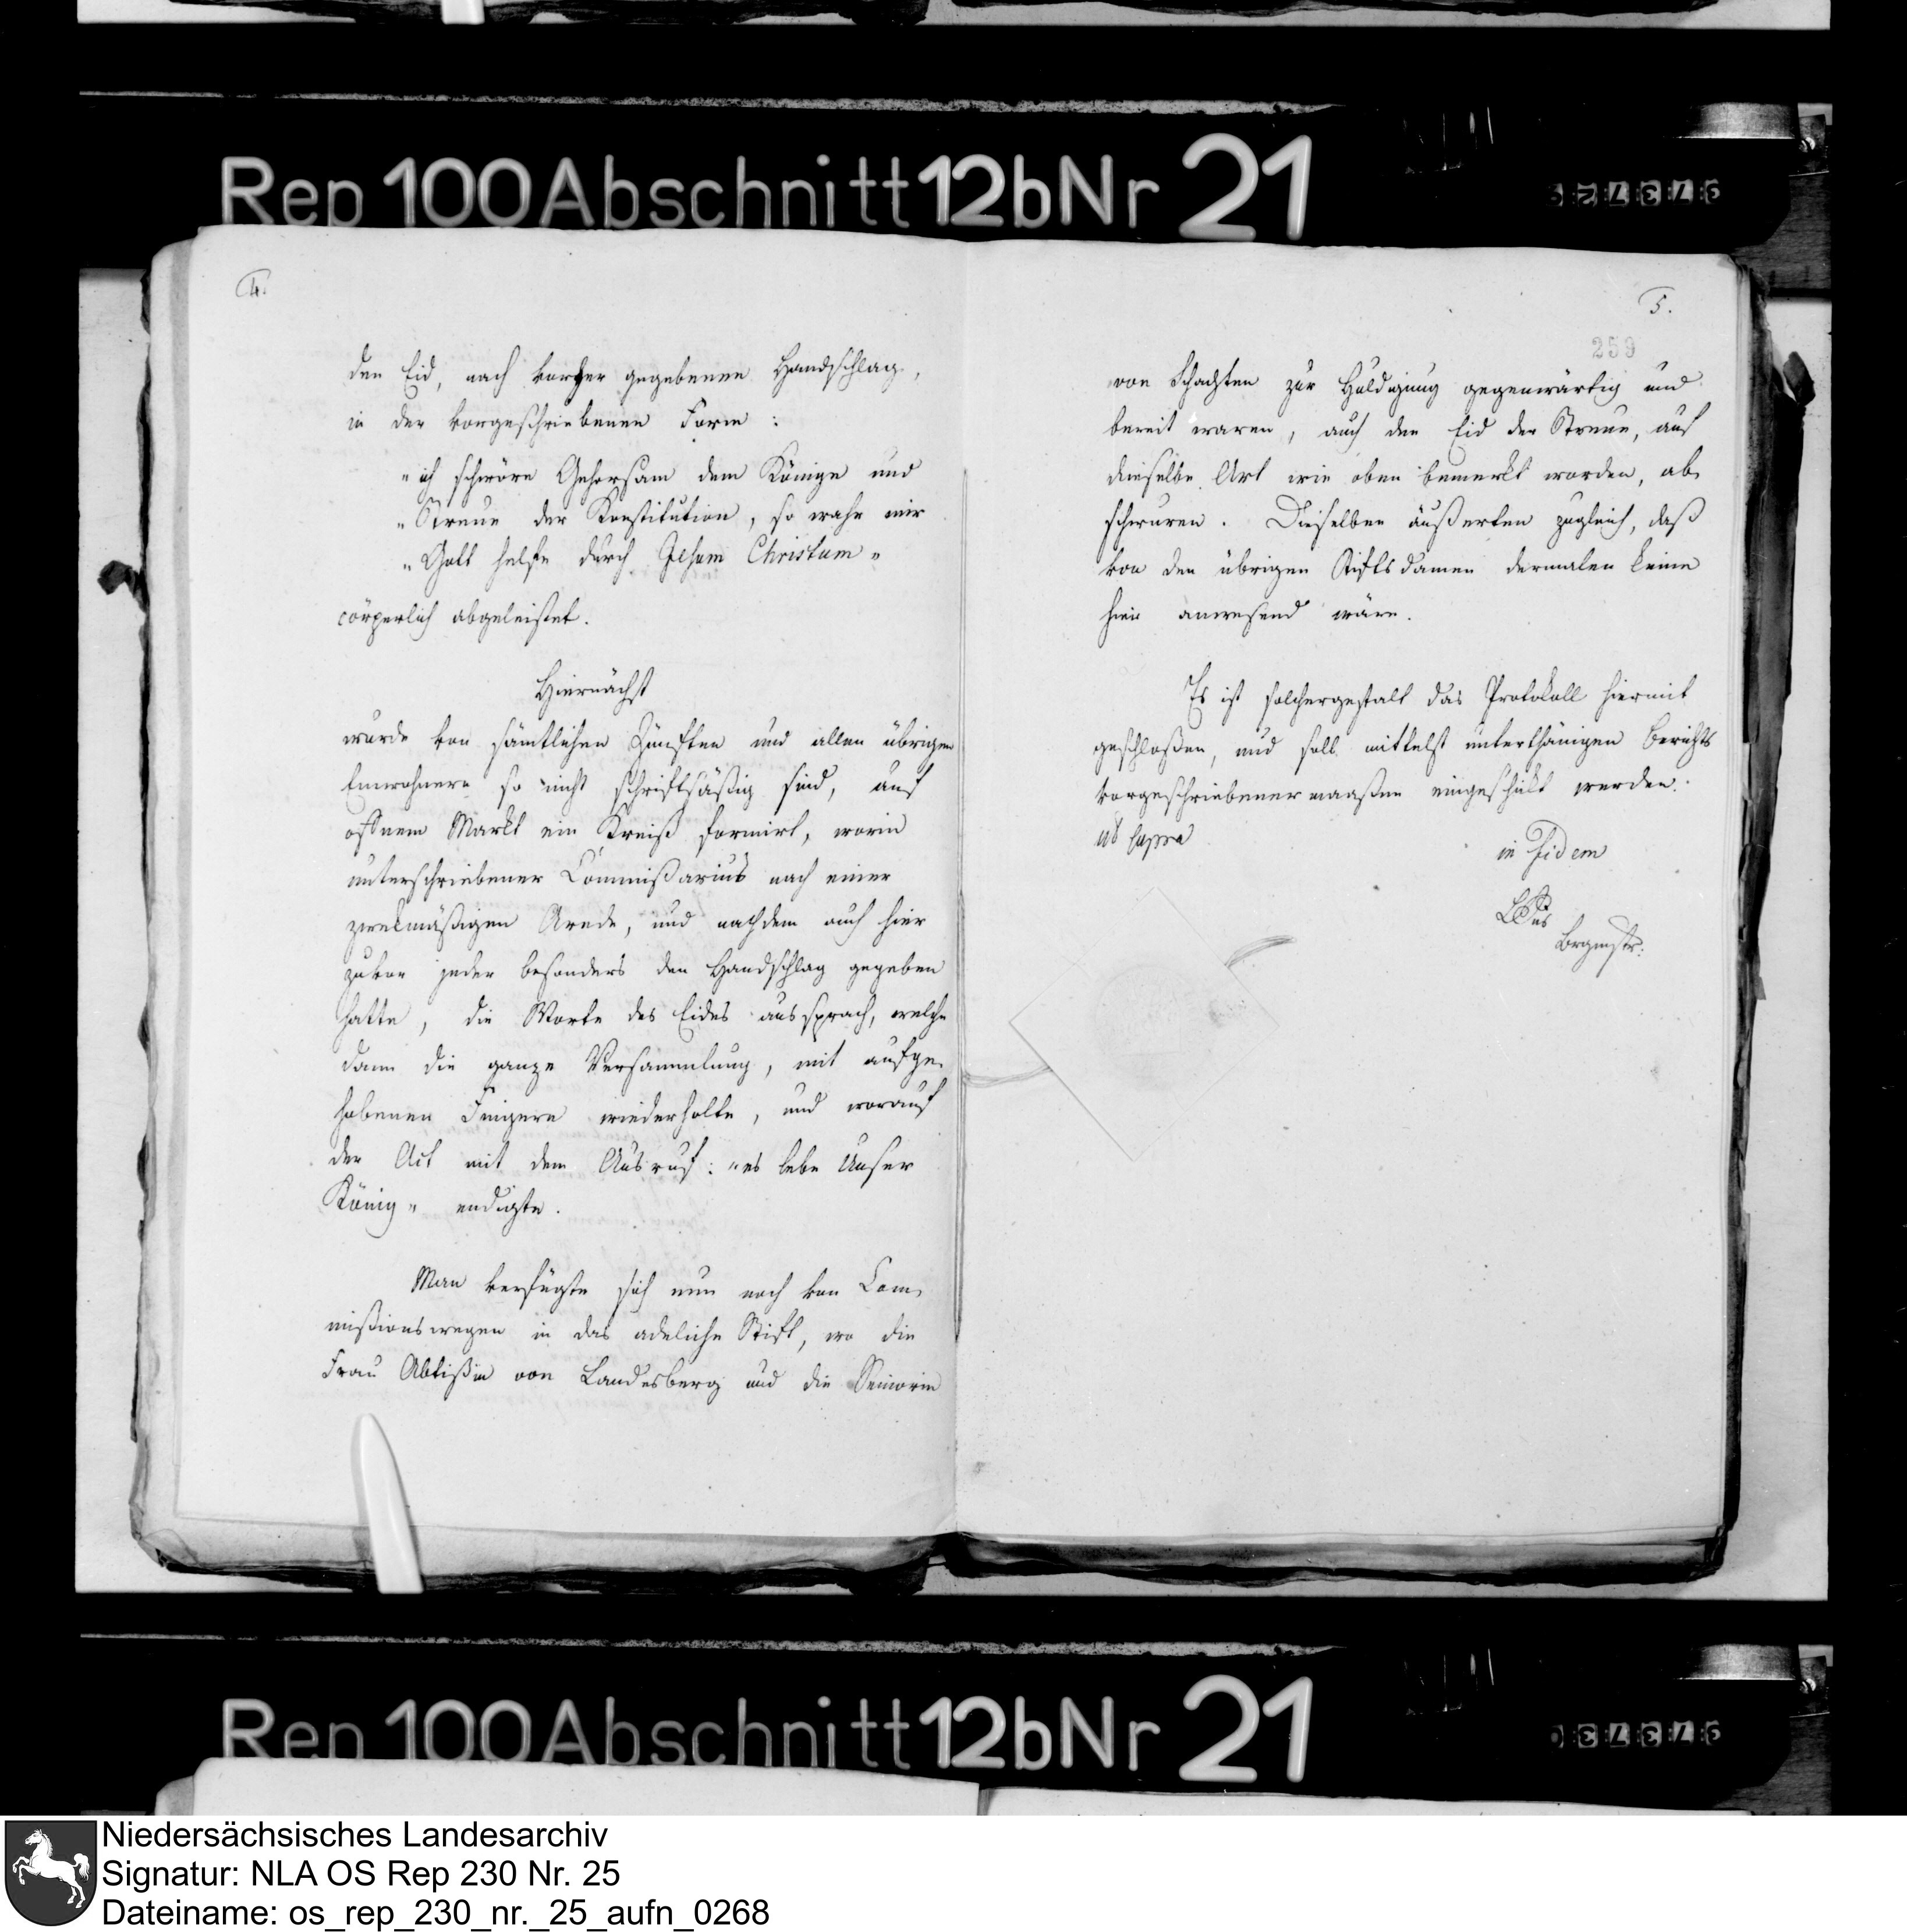 Rep 100 Abschnitt 12b Nr 21
4.
den Eid, nach vorher gegebenen Handschlag,
in der vorgeschriebenen Form:
"ich schwöre Gehorsam dem Könige und
"Treue der Konstitution, so wahr mir
"Gott helfe durch Jesum Christum"
cörperlich abgeleistet.
Hiernächst
wurde von sämtlichen Zünften und allen übrigen
Einwohnern so nicht schriftsäßig sind, auf
offnem Markt ein Kreiß formirt, worin
unterschriebener Commißarius nach einer
zwekmäßigen Anrede, und nachdem auch hier
zuvor jeder besonders den Handschlag gegeben
hatte, die Worte des Eides aussprach, welche
dann die ganze Versammlung, mit aufge-
hobenen Fingern wiederholte, und worauf
der Act mit dem Ausruf: "es lebe Unser
König" endigte.
Man verfügte sich nun noch von Com-
mißionswegen in das adeliche Stift, wo die
Frau Abtißin von Landesberg und die Seniorin
5.
259
von Schachten zur Huldigung gegenwärtig und
bereit waren, auch den Eid der Treue, auf
dieselbe Art wie oben bemerkt worden, ab-
schwuren. Dieselben äußerten zugleich, daß
von den übrigen Stiftsdamen dermalen keine
hier anwesend wäre.
Es ist solchergestalt das Protokoll hiermit
geschloßen, und soll mittelst unterthänigen Berichts
vorgeschriebenermaaßen eingeschikt werden.
ut supra
in fidem
Brgmstr.
Rep 100 Abschnitt 12b Nr 21
Niedersächsisches Landesarchiv
Signatur: NLA OS Rep 230 Nr. 25
Dateiname: os_rep_230_nr._25_aufn_0268